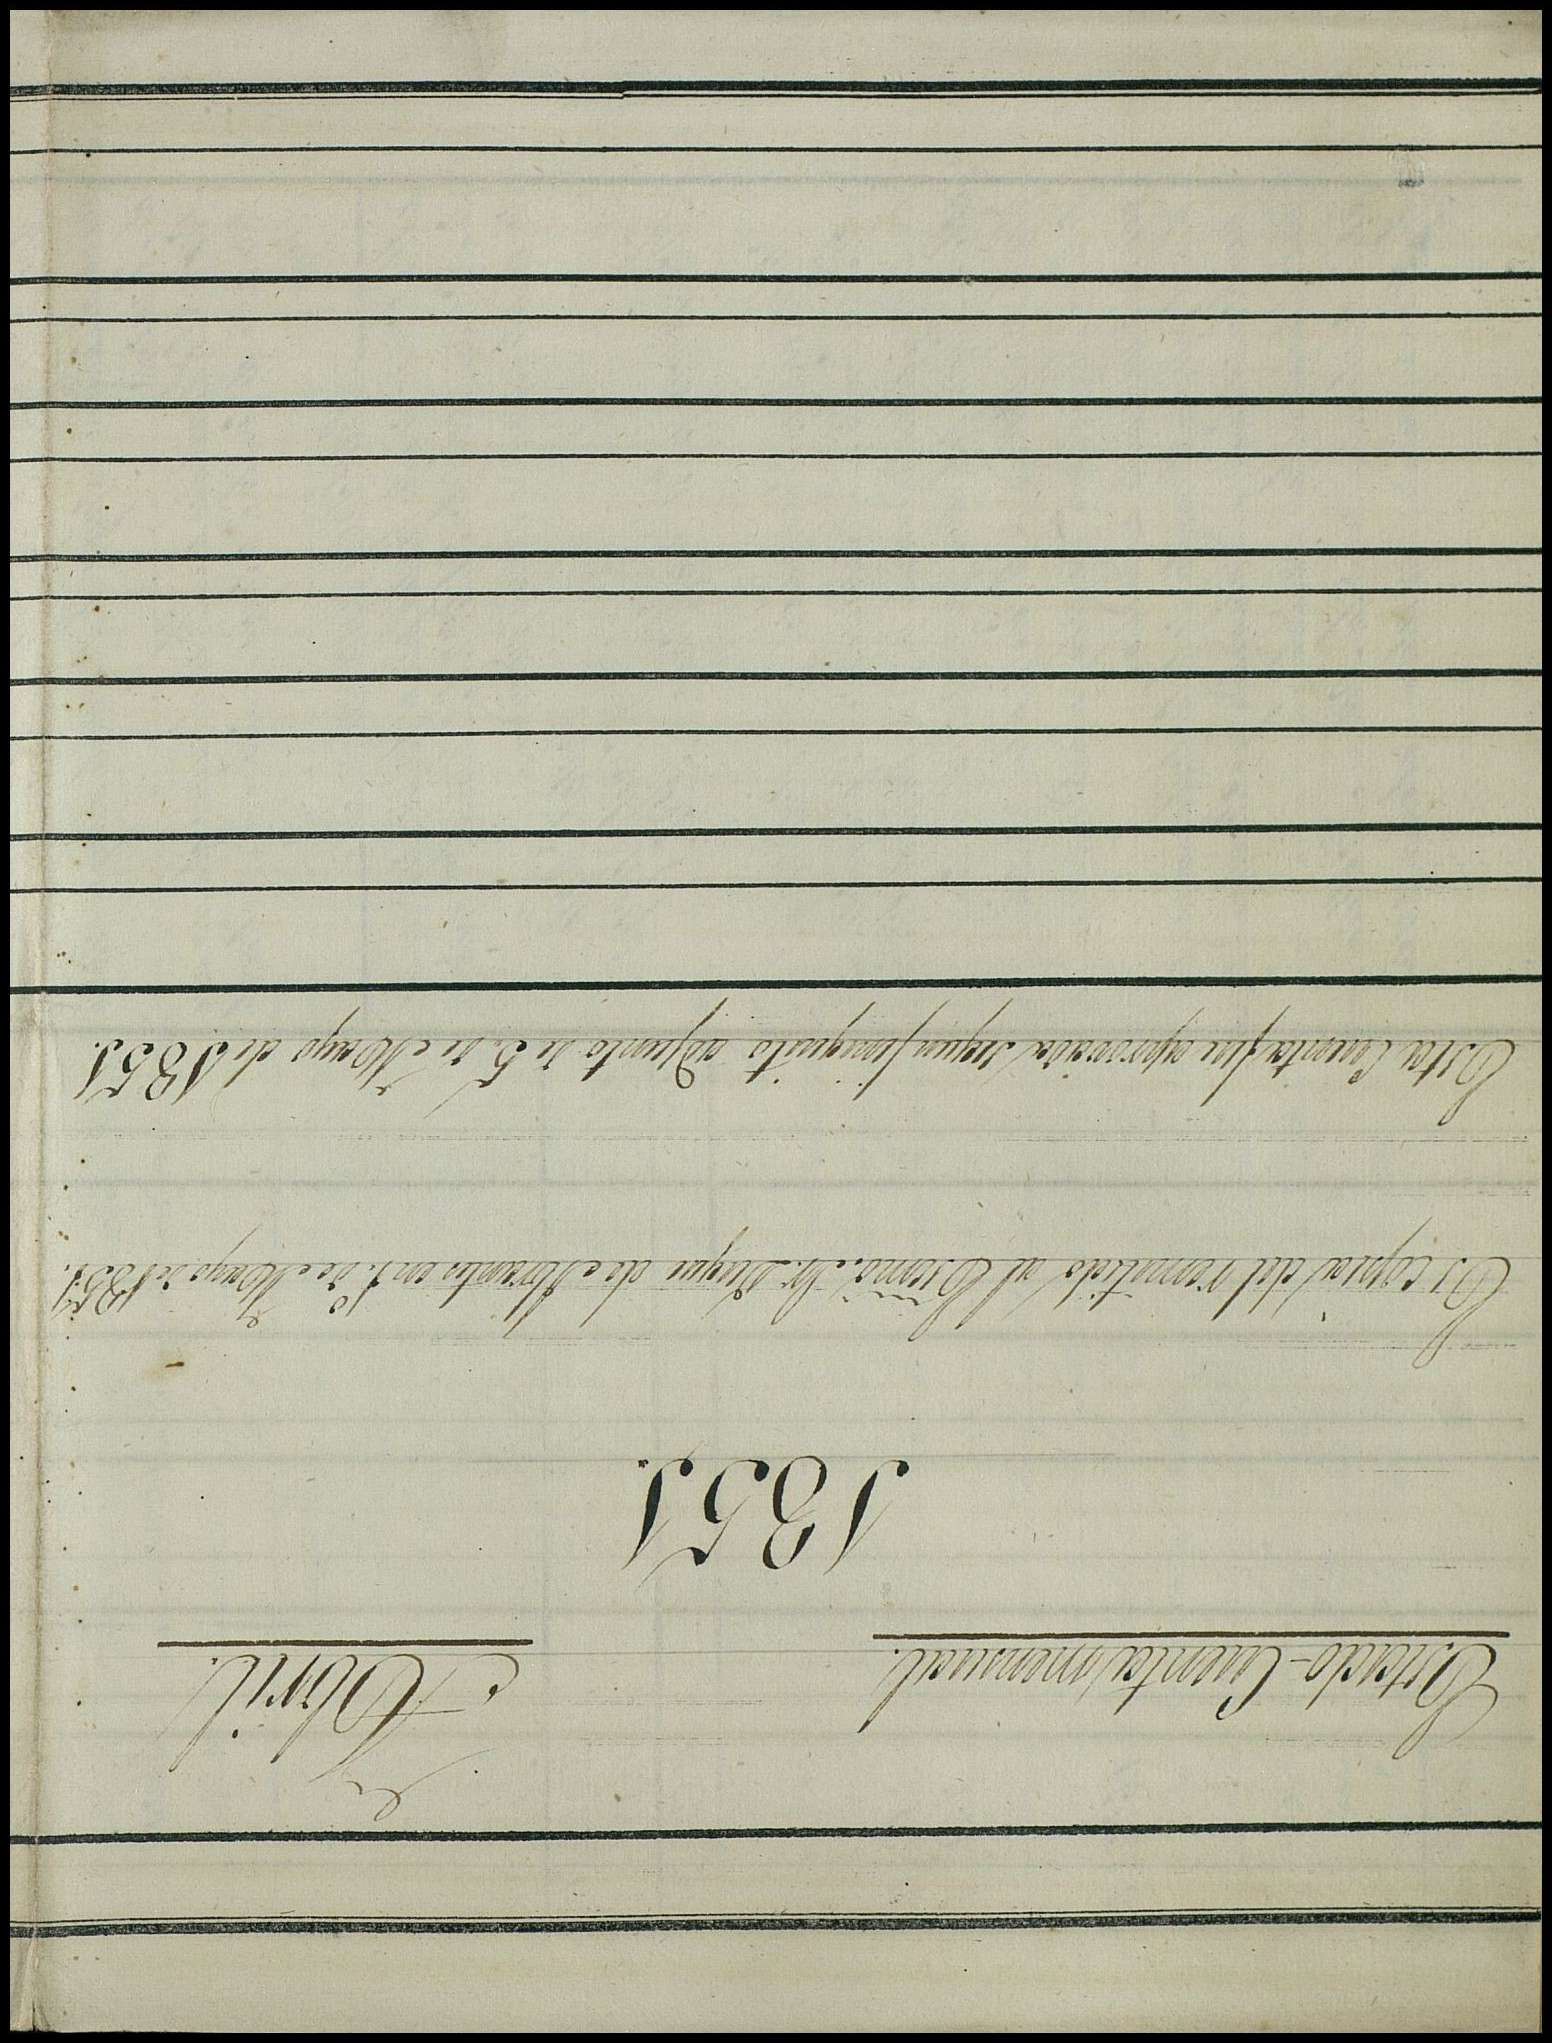 Estado-Cuenta mensual. de Abril.
1851.
Es copia del remitido al Escmo. Sr. Duque de Abrantes en 1º de Mayo de 1851.
Esta Cuenta fue aprovada segun finiquito adjunto de 5. de Mayo de 1851.